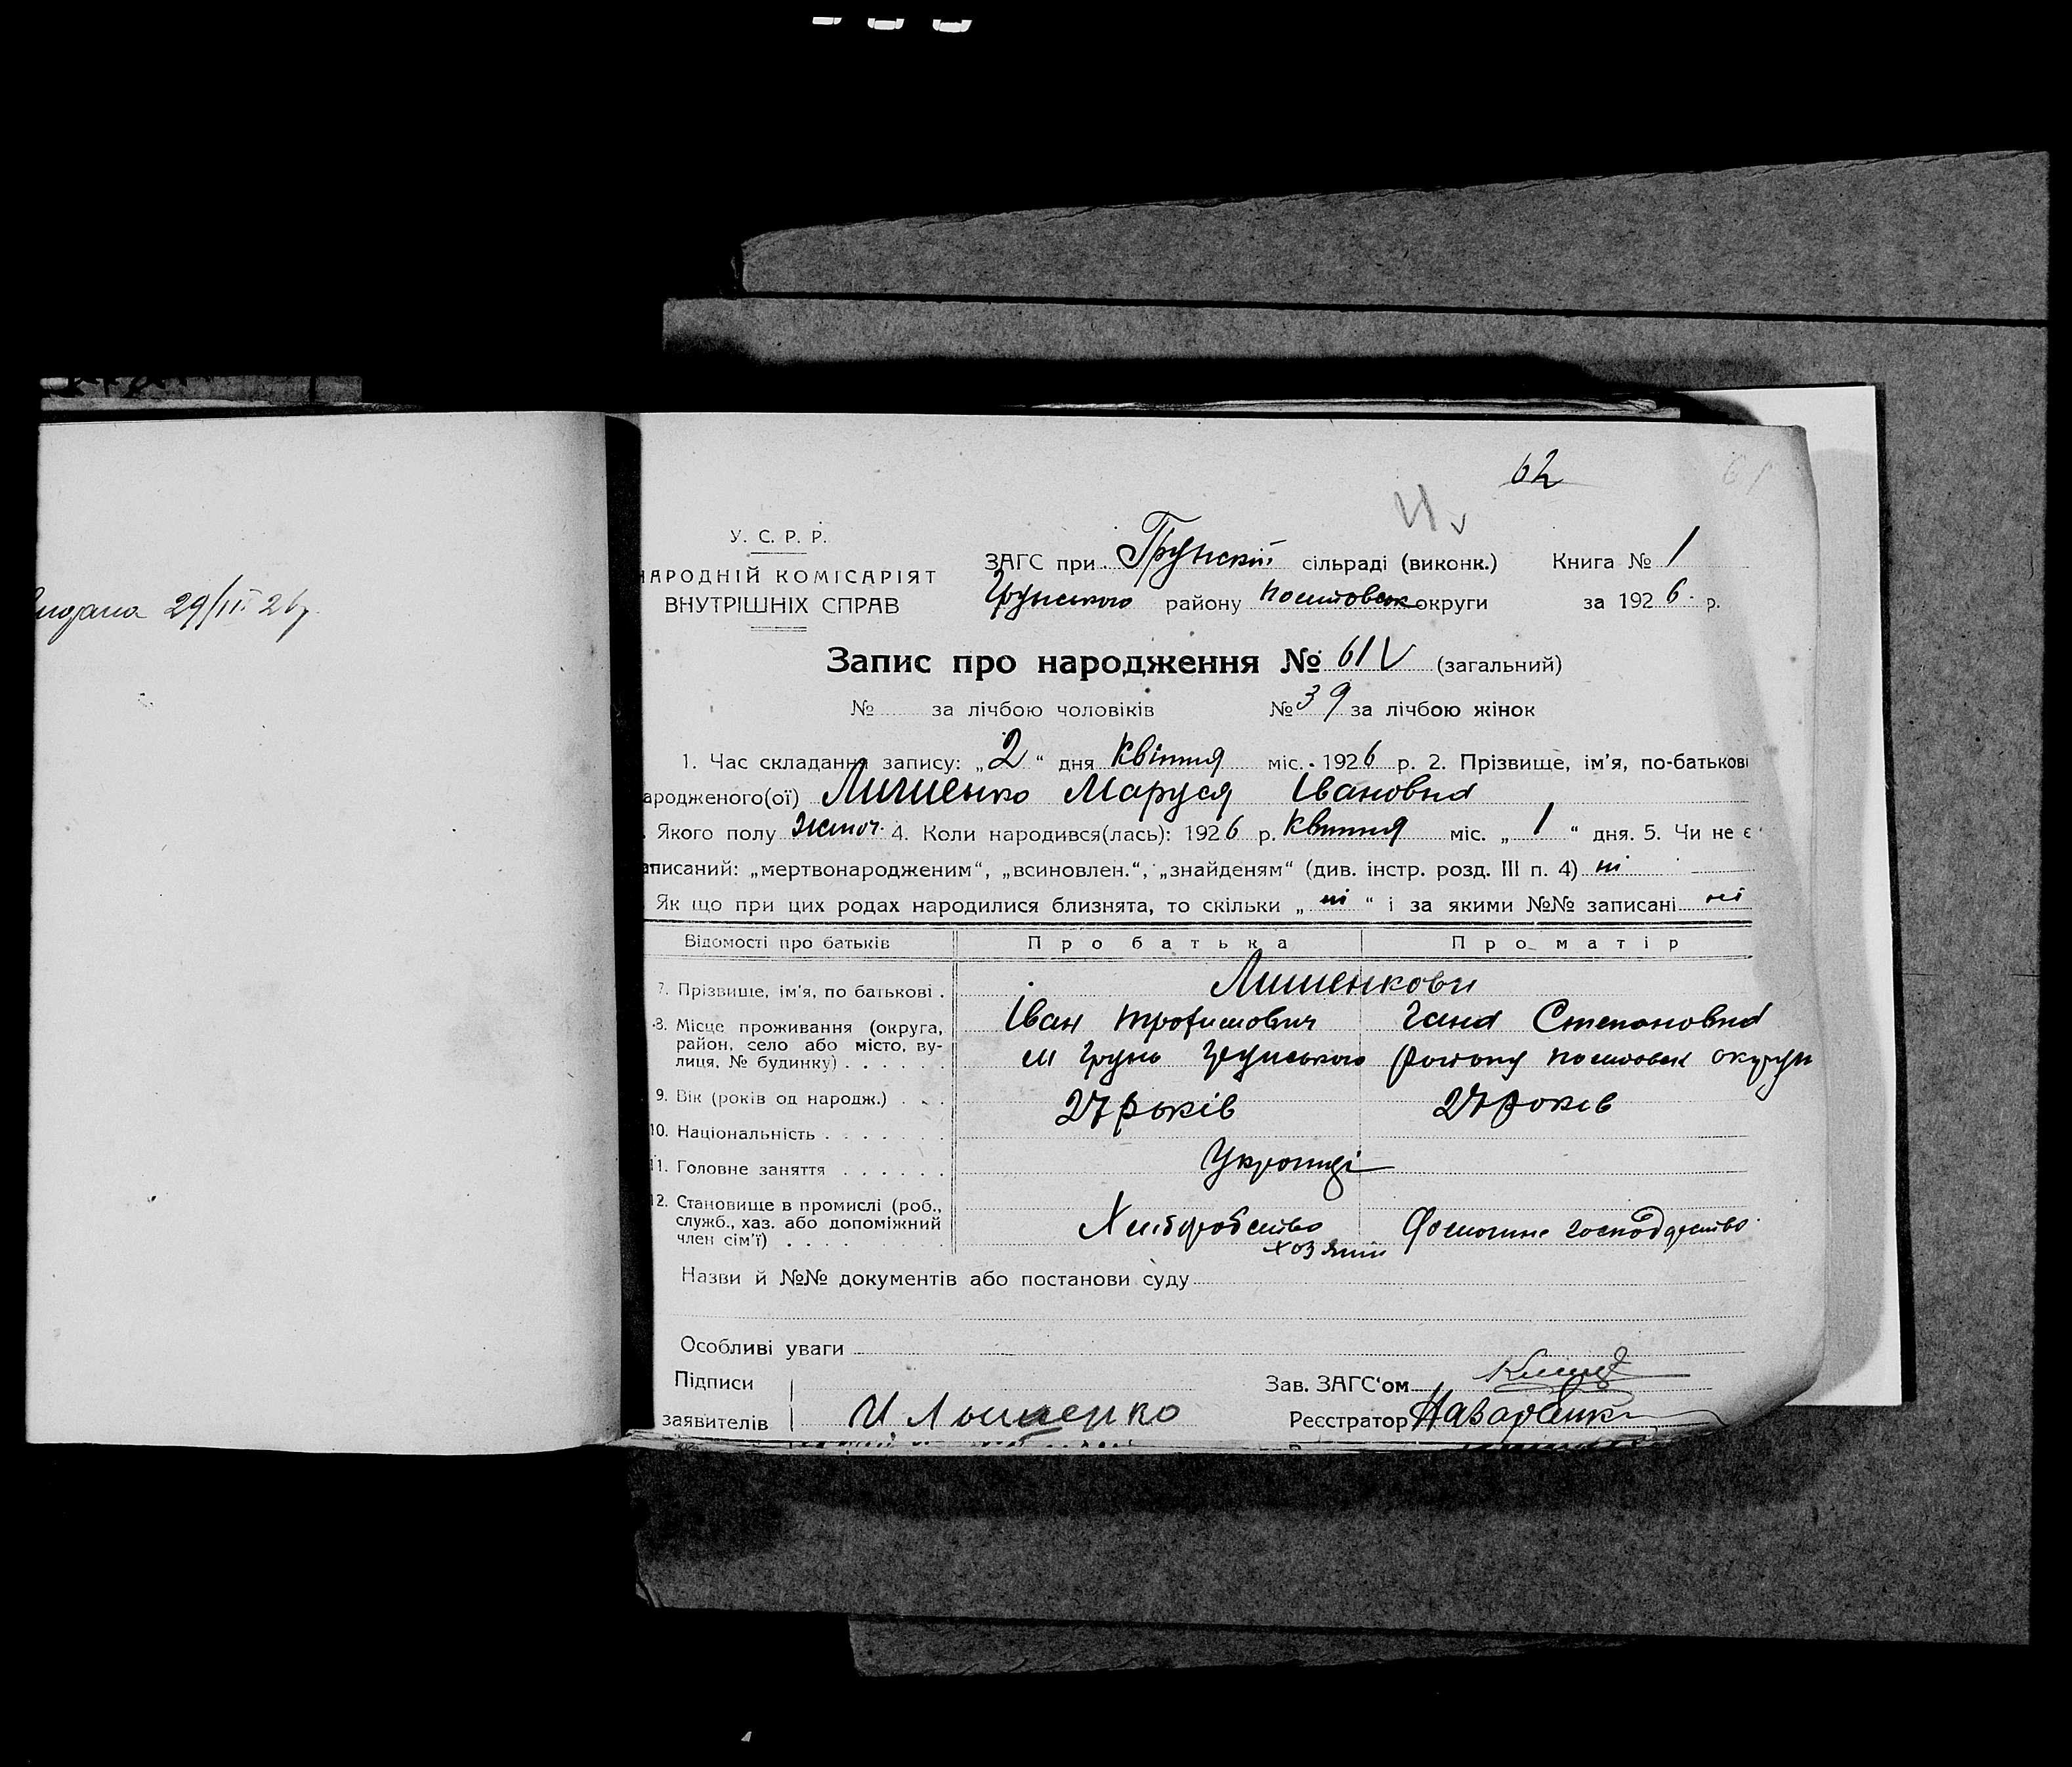 29/III 26 р.
62
61
У. С. Р. Р.
НАРОДНІЙ КОМІСАРІЯТ
ВНУТРІШНІХ СПРАВ
ЗАГС при Грунскій сільраді (виконк.) Книга № 1
Грунського району округи за 1926 р.
Запис про народження № 61 V (загальний)
№ за лічбою чоловіків № 39 за лічбою жінок
1. Час складання запису: „2“ дня Квітня міс. 1926 р. 2. Прізвище, ім'я, по-батькові
ародженого(ої) Лишенко Маруся Івановна
Якого полу жіноч. 4. Коли народився(лась): 1926 р. Квітня міс. „1“ дня. 5. Чи не є
аписаний: „мертвонародженим“, „всиновлен.“, „знайденям“ (див. інстр. розд. III п. 4) ні
Як що при цих родах народилися близнята, то скільки „ні“ і за якими №№ записані ні
Відомості про батьків Про батька Про матір
7. Прізвище, ім'я, по батькові . Лишенкови
8. Місце проживання (округа, Іван Трофимович Гана Степановна
район, село або місто, ву-
лиця, № будинку) . . . . . . м Грунь Грунського району округи
9. Вік (років од народж.) . . . 27 років 27 років
10. Національність . . . . . . .
11. Головне заняття . . . . . . Українці
12. Становище в промислі (роб.,
служб., хаз. або допоміжний Хліборобство господарство
член сім'ї) . . . . . . . . . хозяїн
Назви й №№ документів або постанови суду
Особливі уваги
Підписи Зав. ЗАГС'ом
заявителів И Лышенко Реєстратор Назаренко